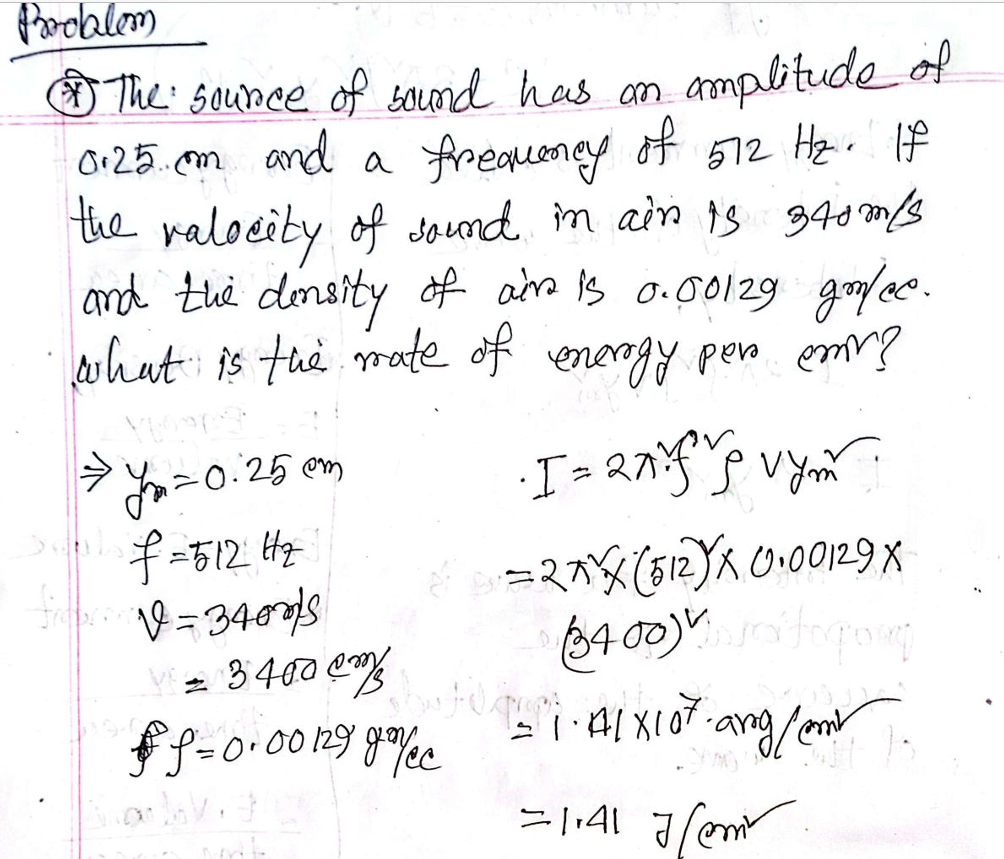 Problem
⊛ The source of sound has an amplitude of
0.25 cm and a frequency of 512 Hz. If
the valocity of sound in air is 340 m/s
and the density of air is 0.00129 gm/cc.
what is the rate of energy per cm²?
⇒ yₘ = 0.25 cm
f = 512 Hz
V = 340 m/s
= 3400 cm/s
ρ = 0.00129 gm/cc
I = 2π²f²ρ V yₘ²
= 2π² × (512)² × 0.00129 ×
(3400)²
= 1.41 × 10⁷ arg/cm²
= 1.41 J/cm²